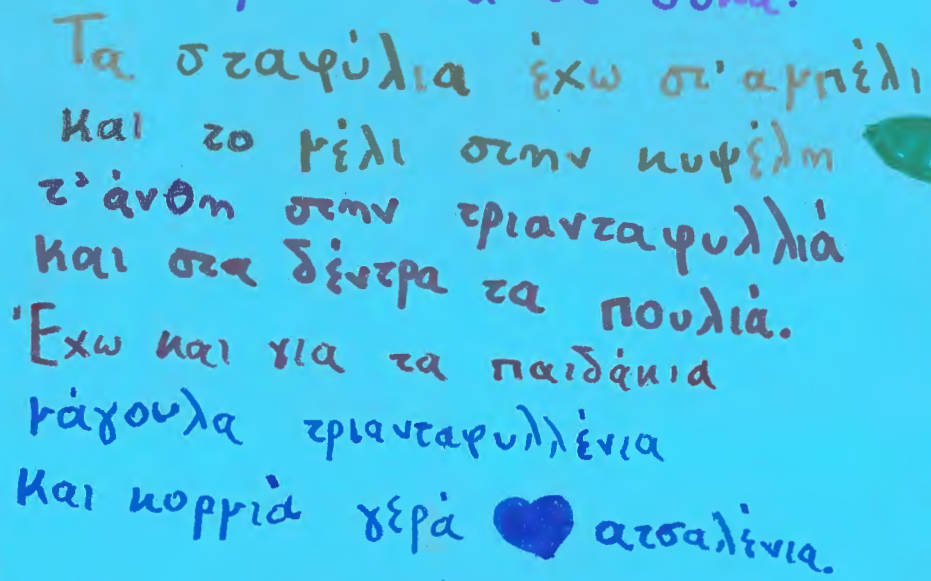 Τα σταφύλια έχω στ' αμπέλι
και το μέλι στην κυψέλη
τ' άνθη στην τριανταφυλλιά
και στα δέντρα τα πουλιά.
Έχω και για τα παιδάκια
μάγουλα τριανταφυλλένια
και κορμιά γερά ατσαλένια.